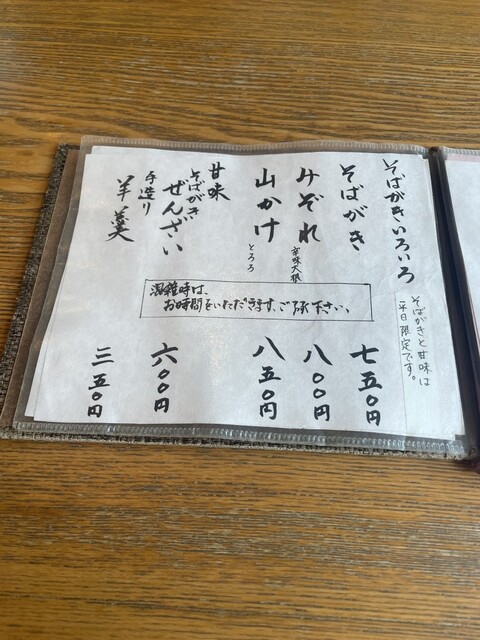 そばがきいろいろ
そばがきと甘味は
平日限定です。
そばがき
七五〇円
みぞれ
八〇〇円
山かけ
とろろ
八五〇円
甘味
そばがき
ぜんざい
六〇〇円
手造り
羊羹
三五〇円
混雑時は、
お時間をいただきます、ご了承下さい。